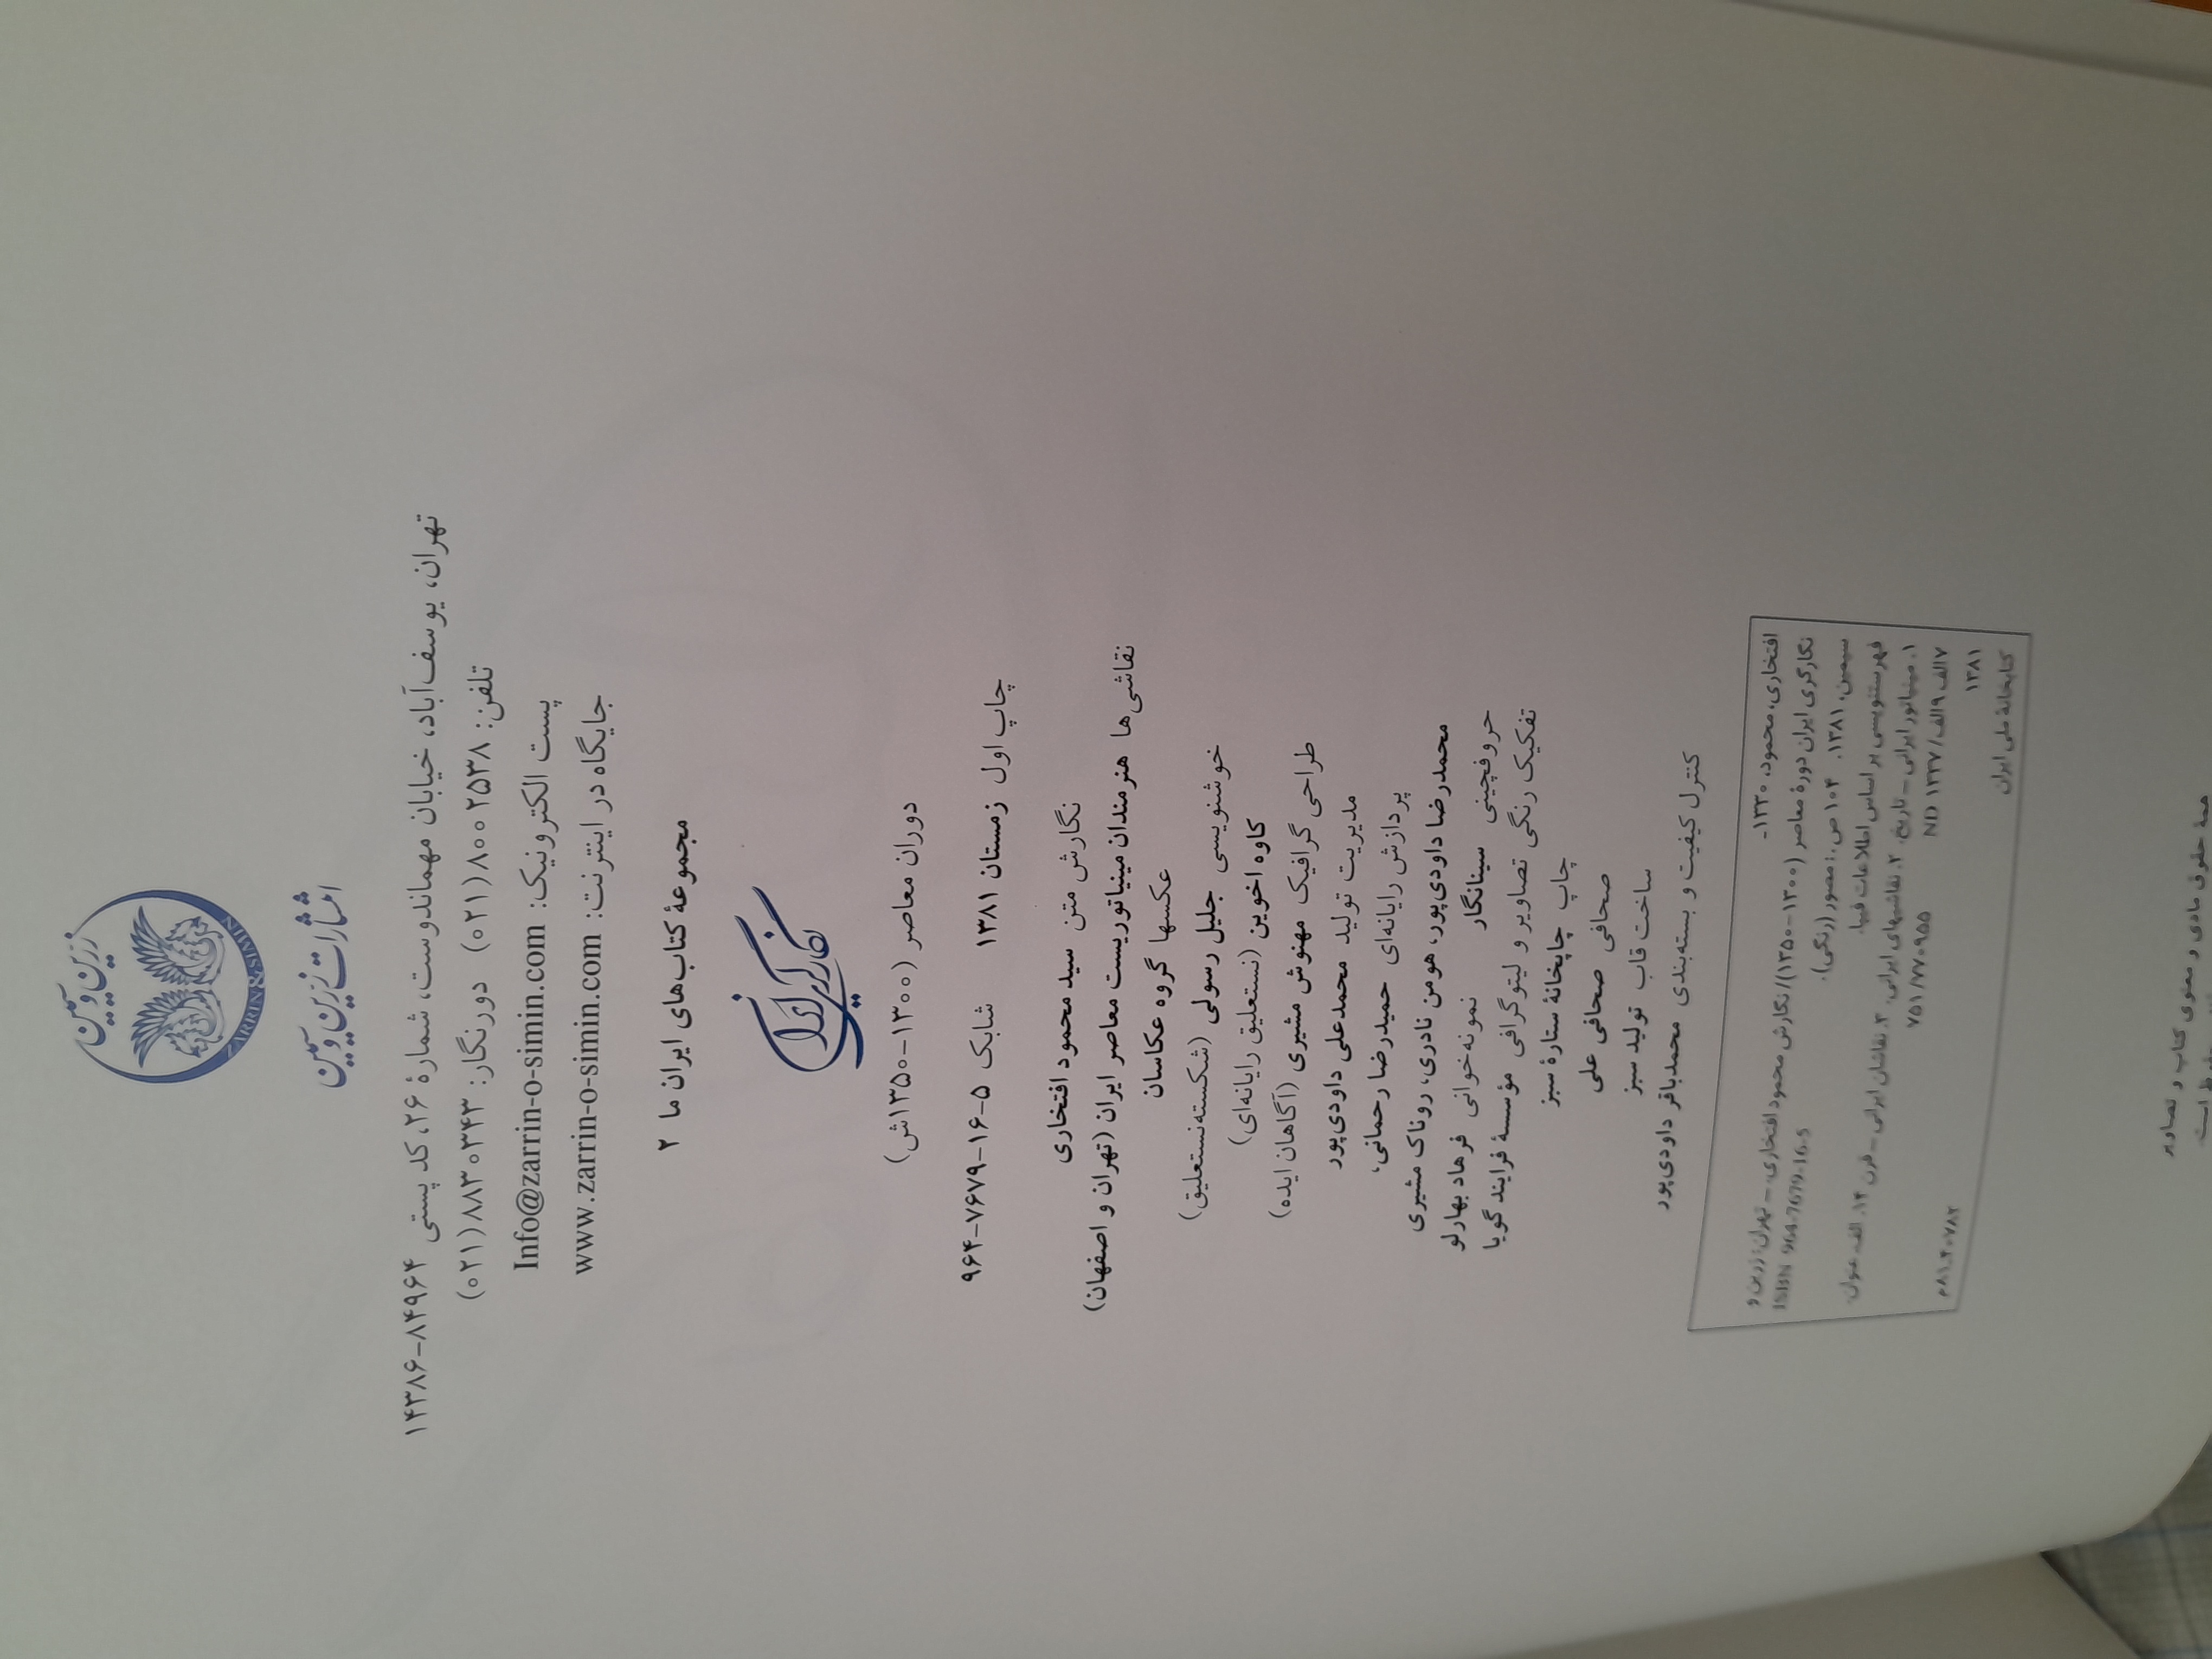 زرین و سیمین
ZARRIN & SIMIN
انتشارات زرین و سیمین
تهران، یوسف‌آباد، خیابان مهماندوست، شمارهٔ ۲۶، کد پستی ۸۴۹۶۴-۱۴۳۸۶
تلفن: ۸۰۰۲۵۳۸ (۰۲۱) دورنگار: ۸۸۳۰۳۴۳ (۰۲۱)
پست الکترونیک: Info@zarrin-o-simin.com
جایگاه در اینترنت: www.zarrin-o-simin.com
مجموعهٔ کتاب‌های ایران ما ۲
نگارگری ایران
دوران معاصر (۱۳۰۰-۱۳۵۰ش)
چاپ اول زمستان ۱۳۸۱ شابک ۵-۱۶-۷۶۷۹-۹۶۴
نگارش متن سید محمود افتخاری
نقاشی‌ها هنرمندان مینیاتوریست معاصر ایران (تهران و اصفهان)
عکسها گروه عکاسان
خوشنویسی جلیل رسولی (شکسته‌نستعلیق)
کاوه اخوین (نستعلیق رایانه‌ای)
طراحی گرافیک مهنوش مشیری (آگاهان ایده)
مدیریت تولید محمدعلی داودی‌پور
پردازش رایانه‌ای حمیدرضا رحمانی،
محمدرضا داودی‌پور، هومن نادری، روناک مشیری
حروفچینی سینانگار نمونه‌خوانی فرهاد بهارلو
تفکیک رنگی تصاویر و لیتوگرافی مؤسسهٔ فرایند گویا
چاپ چاپخانهٔ ستارهٔ سبز
صحافی صحافی علی
ساخت قاب تولید سبز
کنترل کیفیت و بسته‌بندی محمدباقر داودی‌پور
افتخاری، محمود، ۱۳۳۰-
نگارگری ایران دورهٔ معاصر (۱۳۰۰-۱۳۵۰)/ نگارش محمود افتخاری. - تهران: زرین و
سیمین، ۱۳۸۱. ۱۰۴ ص.: مصور (رنگی). ISBN 964-7679-16-5
فهرستنویسی بر اساس اطلاعات فیپا.
۱. مینیاتور ایرانی - تاریخ. ۲. نقاشیهای ایرانی. ۳. نقاشان ایرانی - قرن ۱۴. الف. عنوان.
۷الف۹الف/ ND ۱۳۳۷ ۷۵۱/۷۷۰۹۵۵
۱۳۸۱
کتابخانهٔ ملی ایران
همهٔ حقوق مادی و معنوی کتاب و تصاویر
است